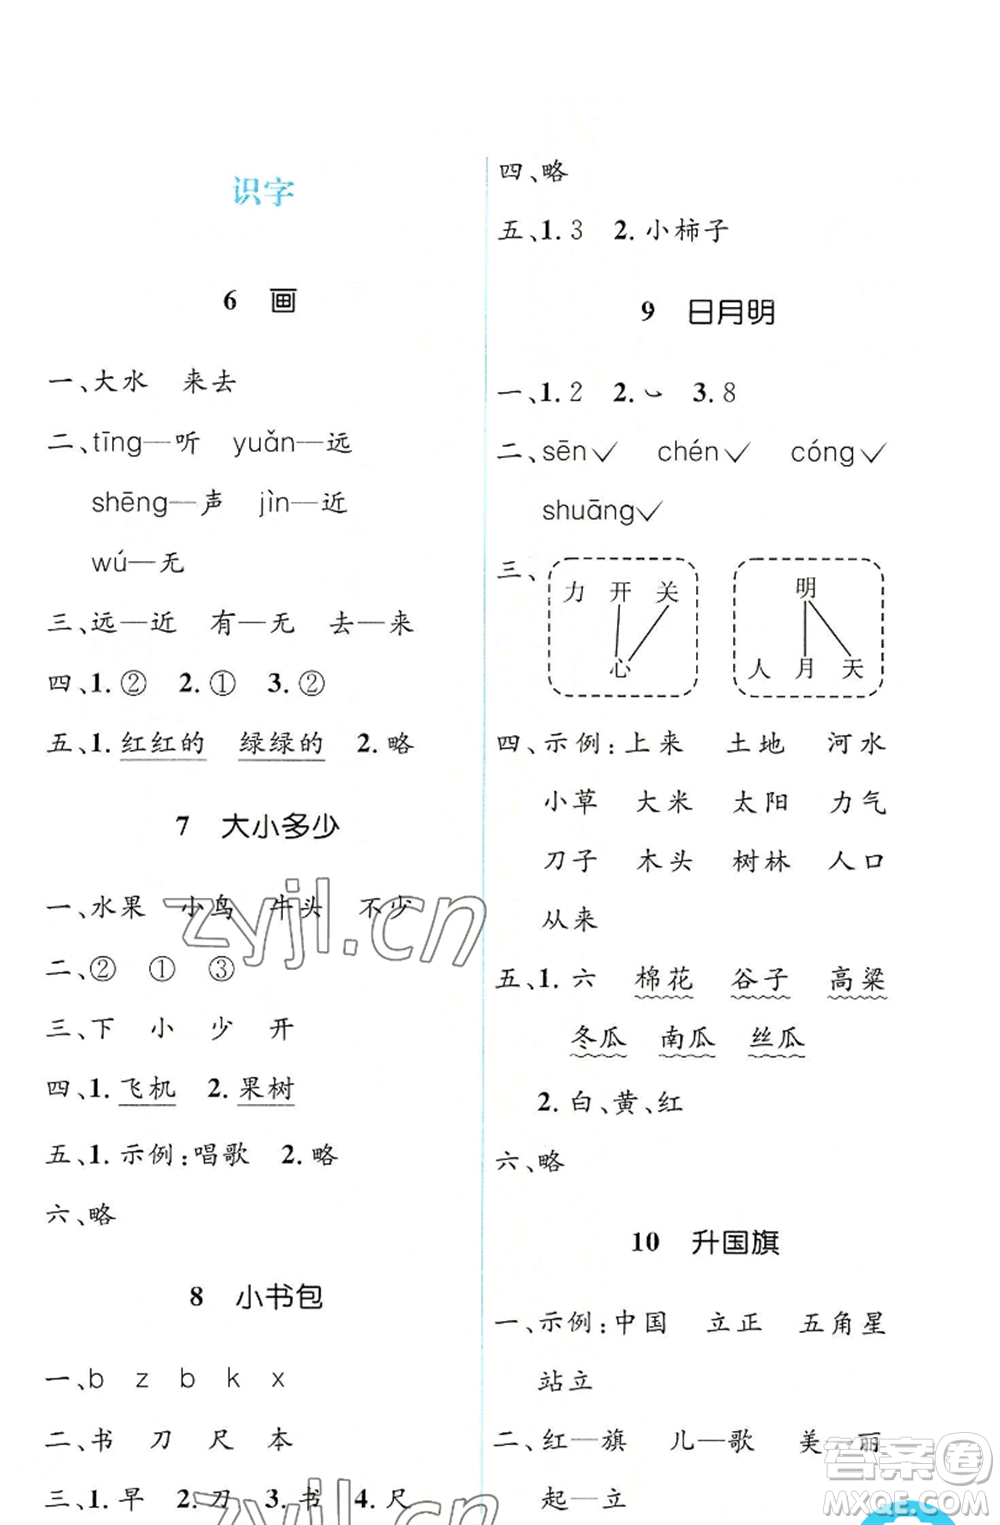 识字
6 画
一、大水 来去
二、tīng—听 yuǎn—远
shēng—声 jìn—近
wú—无
三、远—近 有—无 去—来
四、1.② 2.① 3.②
五、1.红红的 绿绿的 2.略
7 大小多少
一、水果 小鸟 牛头 不少
二、② ① ③
三、下 小 少 开
四、1.飞机 2.果树
五、1.示例:唱歌 2.略
六、略
8 小书包
一、b z b k x
二、书 刀 尺 本
三、1.早 2.刀 3.书 4.尺
四、略
五、1.3 2.小柿子
9 日月明
一、1.2 2.㇃ 3.8
二、sēn✓ chén✓ cóng✓
shuāng✓
三、
力 开 关
心
明
人 月 天
四、示例:上来 土地 河水
小草 大米 太阳 力气
刀子 木头 树林 人口
从来
五、1.六 棉花 谷子 高粱
冬瓜 南瓜 丝瓜
2.白、黄、红
六、略
10 升国旗
一、示例:中国 立正 五角星
站立
二、红—旗 儿—歌 美—丽
起—立
zyjl.cn
zyjl.cn
答案圈
MXQE.COM